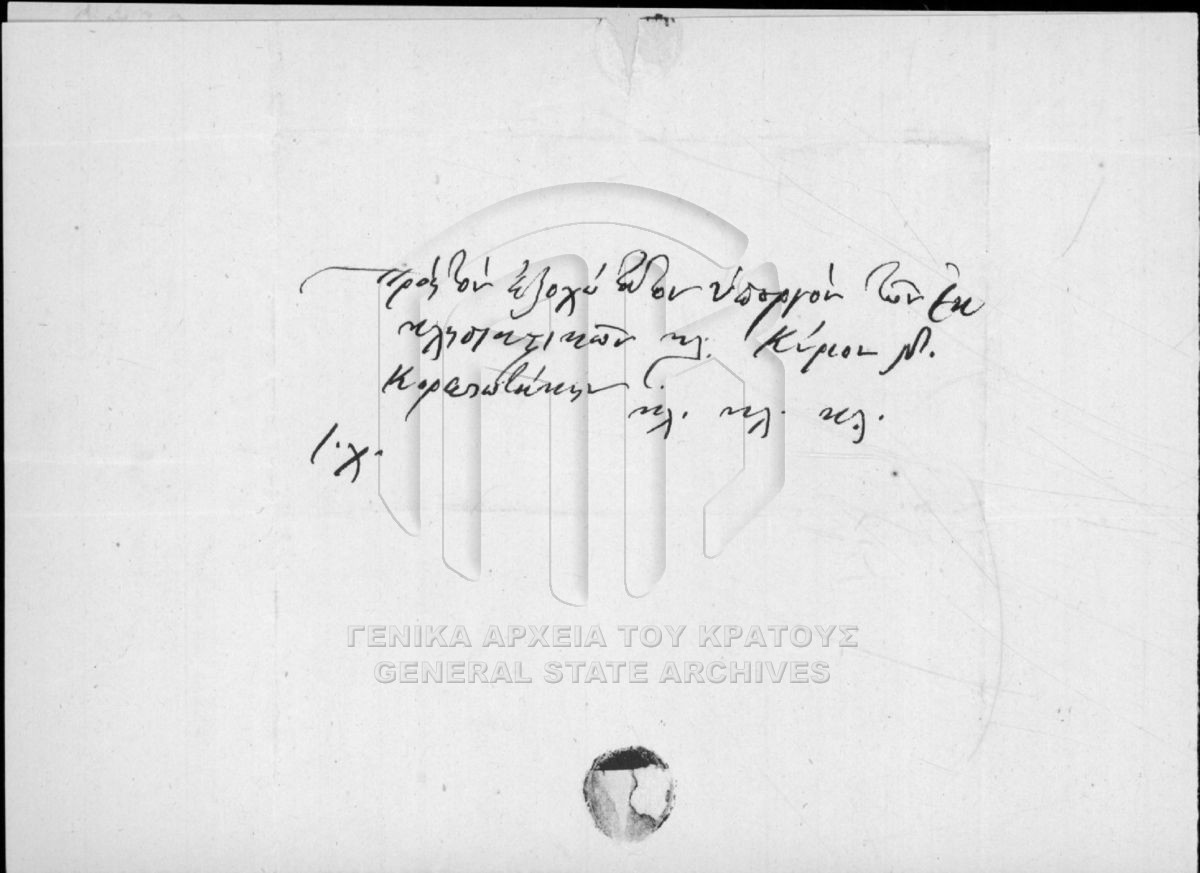 Πρὸς τὸν ἐξοχώτατον ὑπουργὸν τῶν Ἐκ
κλησιαστικῶν κλ. Κύριον
κλ. κλ. κλ.
ΓΕΝΙΚΑ ΑΡΧΕΙΑ ΤΟΥ ΚΡΑΤΟΥΣ
GENERAL STATE ARCHIVES